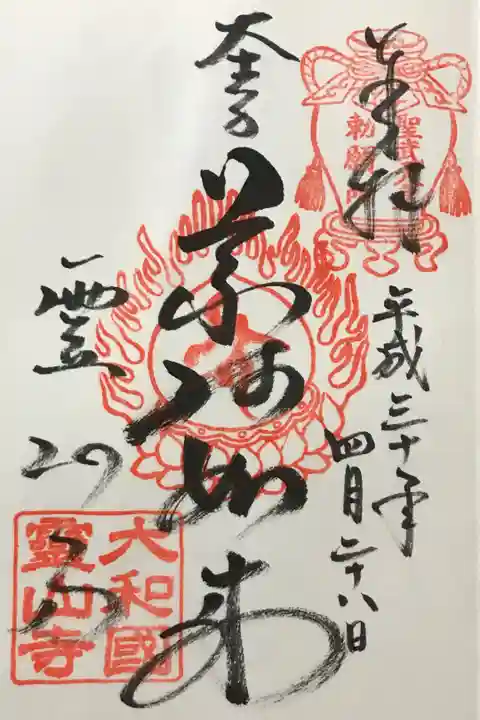 奉拝
聖武天皇
勅願所
平成三十年
四月二十八日
薬師如来
霊山寺
大和國
靈山寺